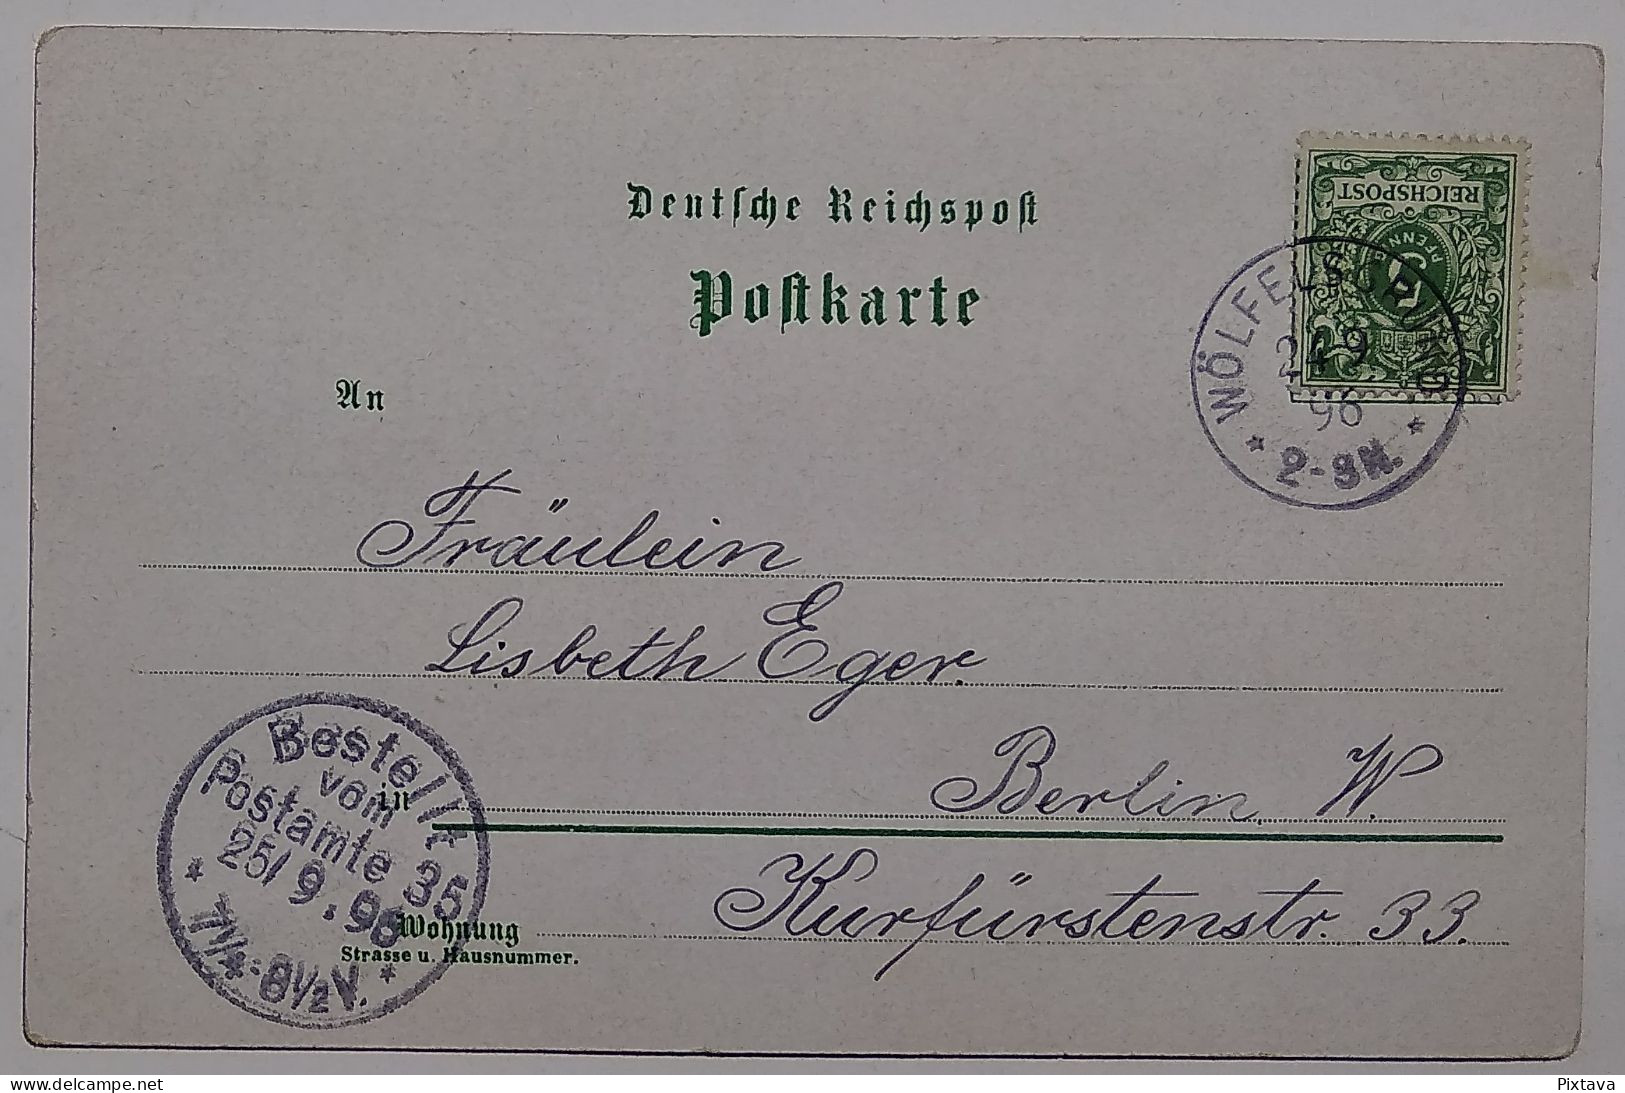 Deutsche Reichspost
Postkarte
REICHSPOST
PFENNIG
5
WÖLFELSGRUND
24 9
96
* 2-3N. *
An
Fräulein
Lisbeth Eger.
in Berlin. W.
Wohnung Kurfürstenstr. 33.
Strasse u. Hausnummer.
Bestellt
vom
Postamte 35
25/9.96
* 7¼-8½V. *
http://pixtavastamps.delcampe.net
Pixtava